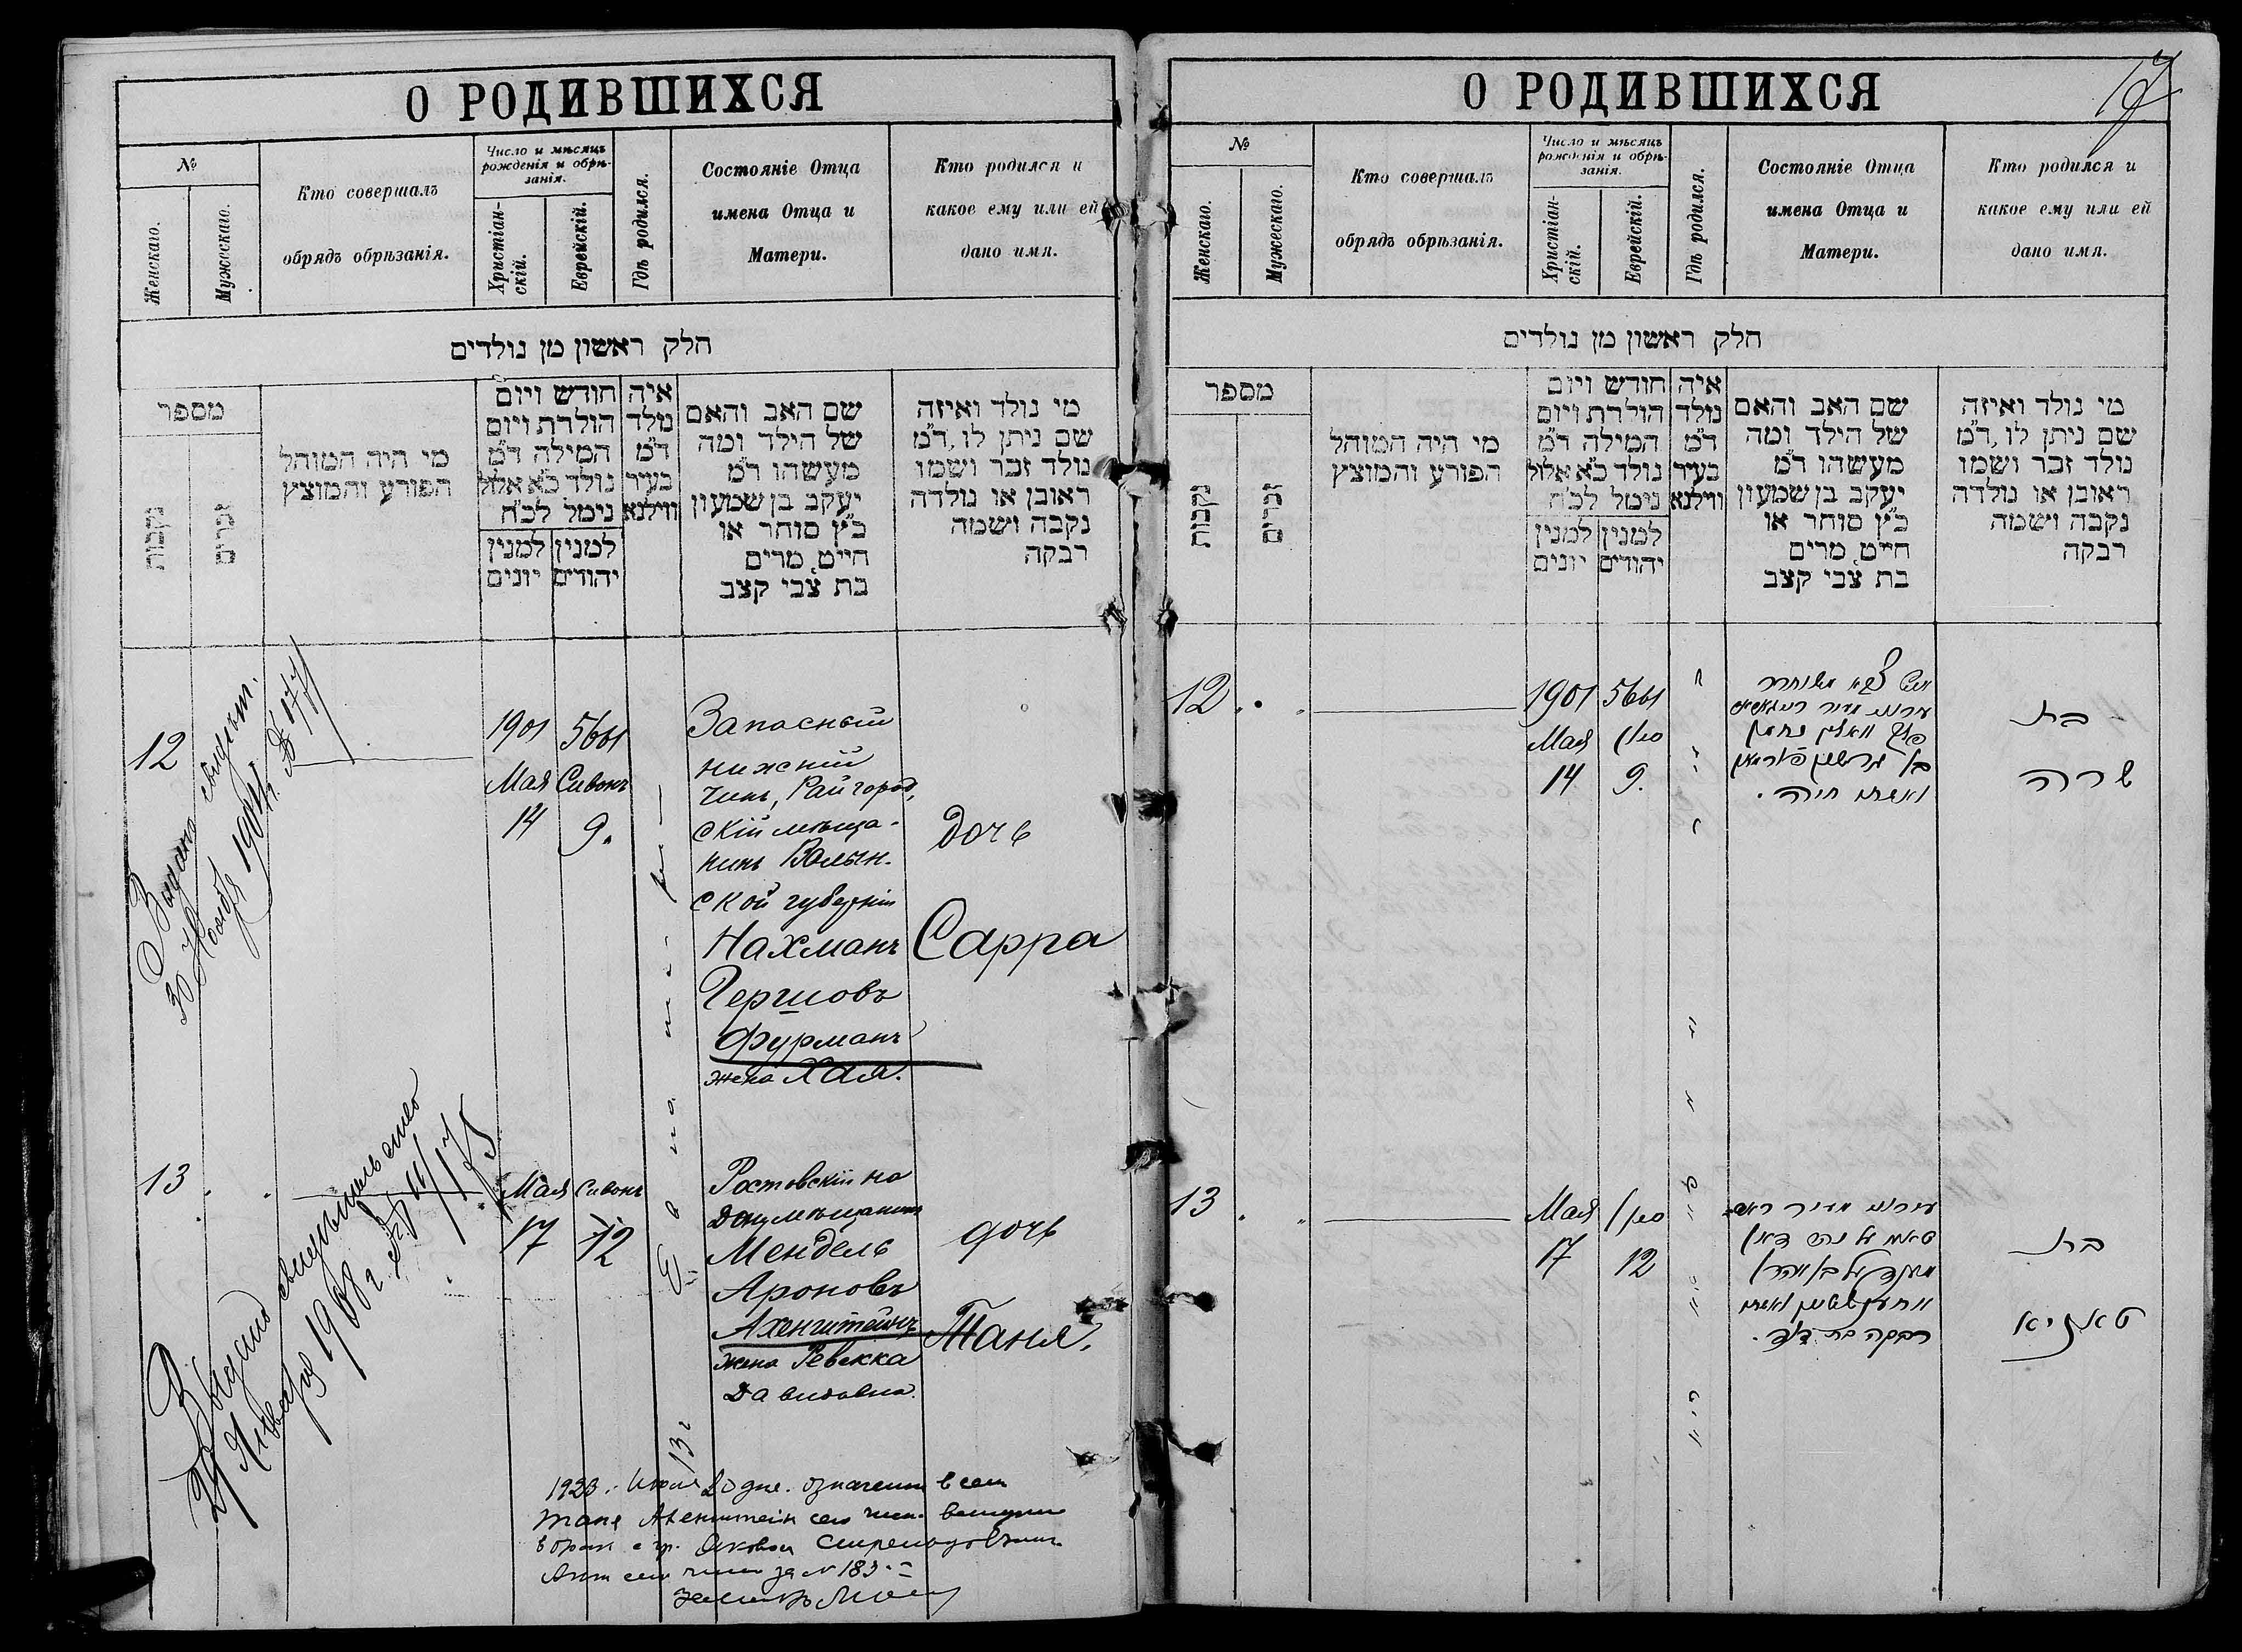 О РОДИВШИХСЯ
№
Женскаго.
Мужескаго.
Кто совершалъ
обрядъ обрѣзанія.
Число и мѣсяцъ
рожденія и обрѣ-
занія.
Христіан-
скій.
Еврейскій.
Гдѣ родился.
Состояніе Отца
имена Отца и
Матери.
Кто родился и
какое ему или ей
дано имя.
חלק ראשון מן נולדים
מספר
נקבות
זכרים
מי היה המוהל
הפורע והמוצץ
חודש ויום
הולדת ויום
המילה ד״מ
נולד כ״א אלול
נימל לכ״ח
למנין
יונים
למנין
יהודים
איה
נולד
ד״מ
בעיר
ווילנא
שם האב והאם
של הילד ומה
מעשהו ד״מ
יעקב בן שמעון
כ״ץ סוחר או
חייט מרים
בת צבי קצב
מי נולד ואיזה
שם ניתן לו, ד״מ
נולד זכר ושמו
ראובן או נולדה
נקבה ושמה
רבקה
12
Выдано свидѣт.
30 Ноября 1904 г. №
1901
Мая
14
5661
Сивонъ
9.
Запасный
нижній
чинъ, Райгород,
скій мѣща-
нинъ Волын-
ской губерніи
Нахманъ
Гершовъ
Фурманъ
жена Хая.
дочь
Сарра
13
Выдано свидѣтельство
Января 1908 г. №
Мая
17
Сивонъ
12
Ростовскій на
Дону мѣщанинъ
Мендель
Ароновъ
Ахенштейнъ
жена Ревекка
Давидовна.
дочь
Таня.
1923. Июля 20 дня. означенная в сем
Таня Ахенштейн сего числа вступила
в брак с гр.
Акт сего числа за № 183.
О РОДИВШИХСЯ
17
№
Женскаго.
Мужескаго.
Кто совершалъ
обрядъ обрѣзанія.
Число и мѣсяцъ
рожденія и обрѣ-
занія.
Христіан-
скій.
Еврейскій.
Гдѣ родился.
Состояніе Отца
имена Отца и
Матери.
Кто родился и
какое ему или ей
дано имя.
חלק ראשון מן נולדים
מספר
נקבות
זכרים
מי היה המוהל
הפורע והמוצץ
חודש ויום
הולדת ויום
המילה ד״מ
נולד כ״א אלול
נימל לכ״ח
למנין
יונים
למנין
יהודים
איה
נולד
ד״מ
בעיר
ווילנא
שם האב והאם
של הילד ומה
מעשהו ד״מ
יעקב בן שמעון
כ״ץ סוחר או
חייט מרים
בת צבי קצב
מי נולד ואיזה
שם ניתן לו, ד״מ
נולד זכר ושמו
ראובן או נולדה
נקבה ושמה
רבקה
12
1901
Мая
14
5661
סיון
9.
איש צבא משוחרר
פלך וואלין נחמן
ואשתו חיה.
בת
שרה
13
Мая
17
סיון
12
מענדיל בן אהרן
רבקה בת דוד.
בת
טאניא